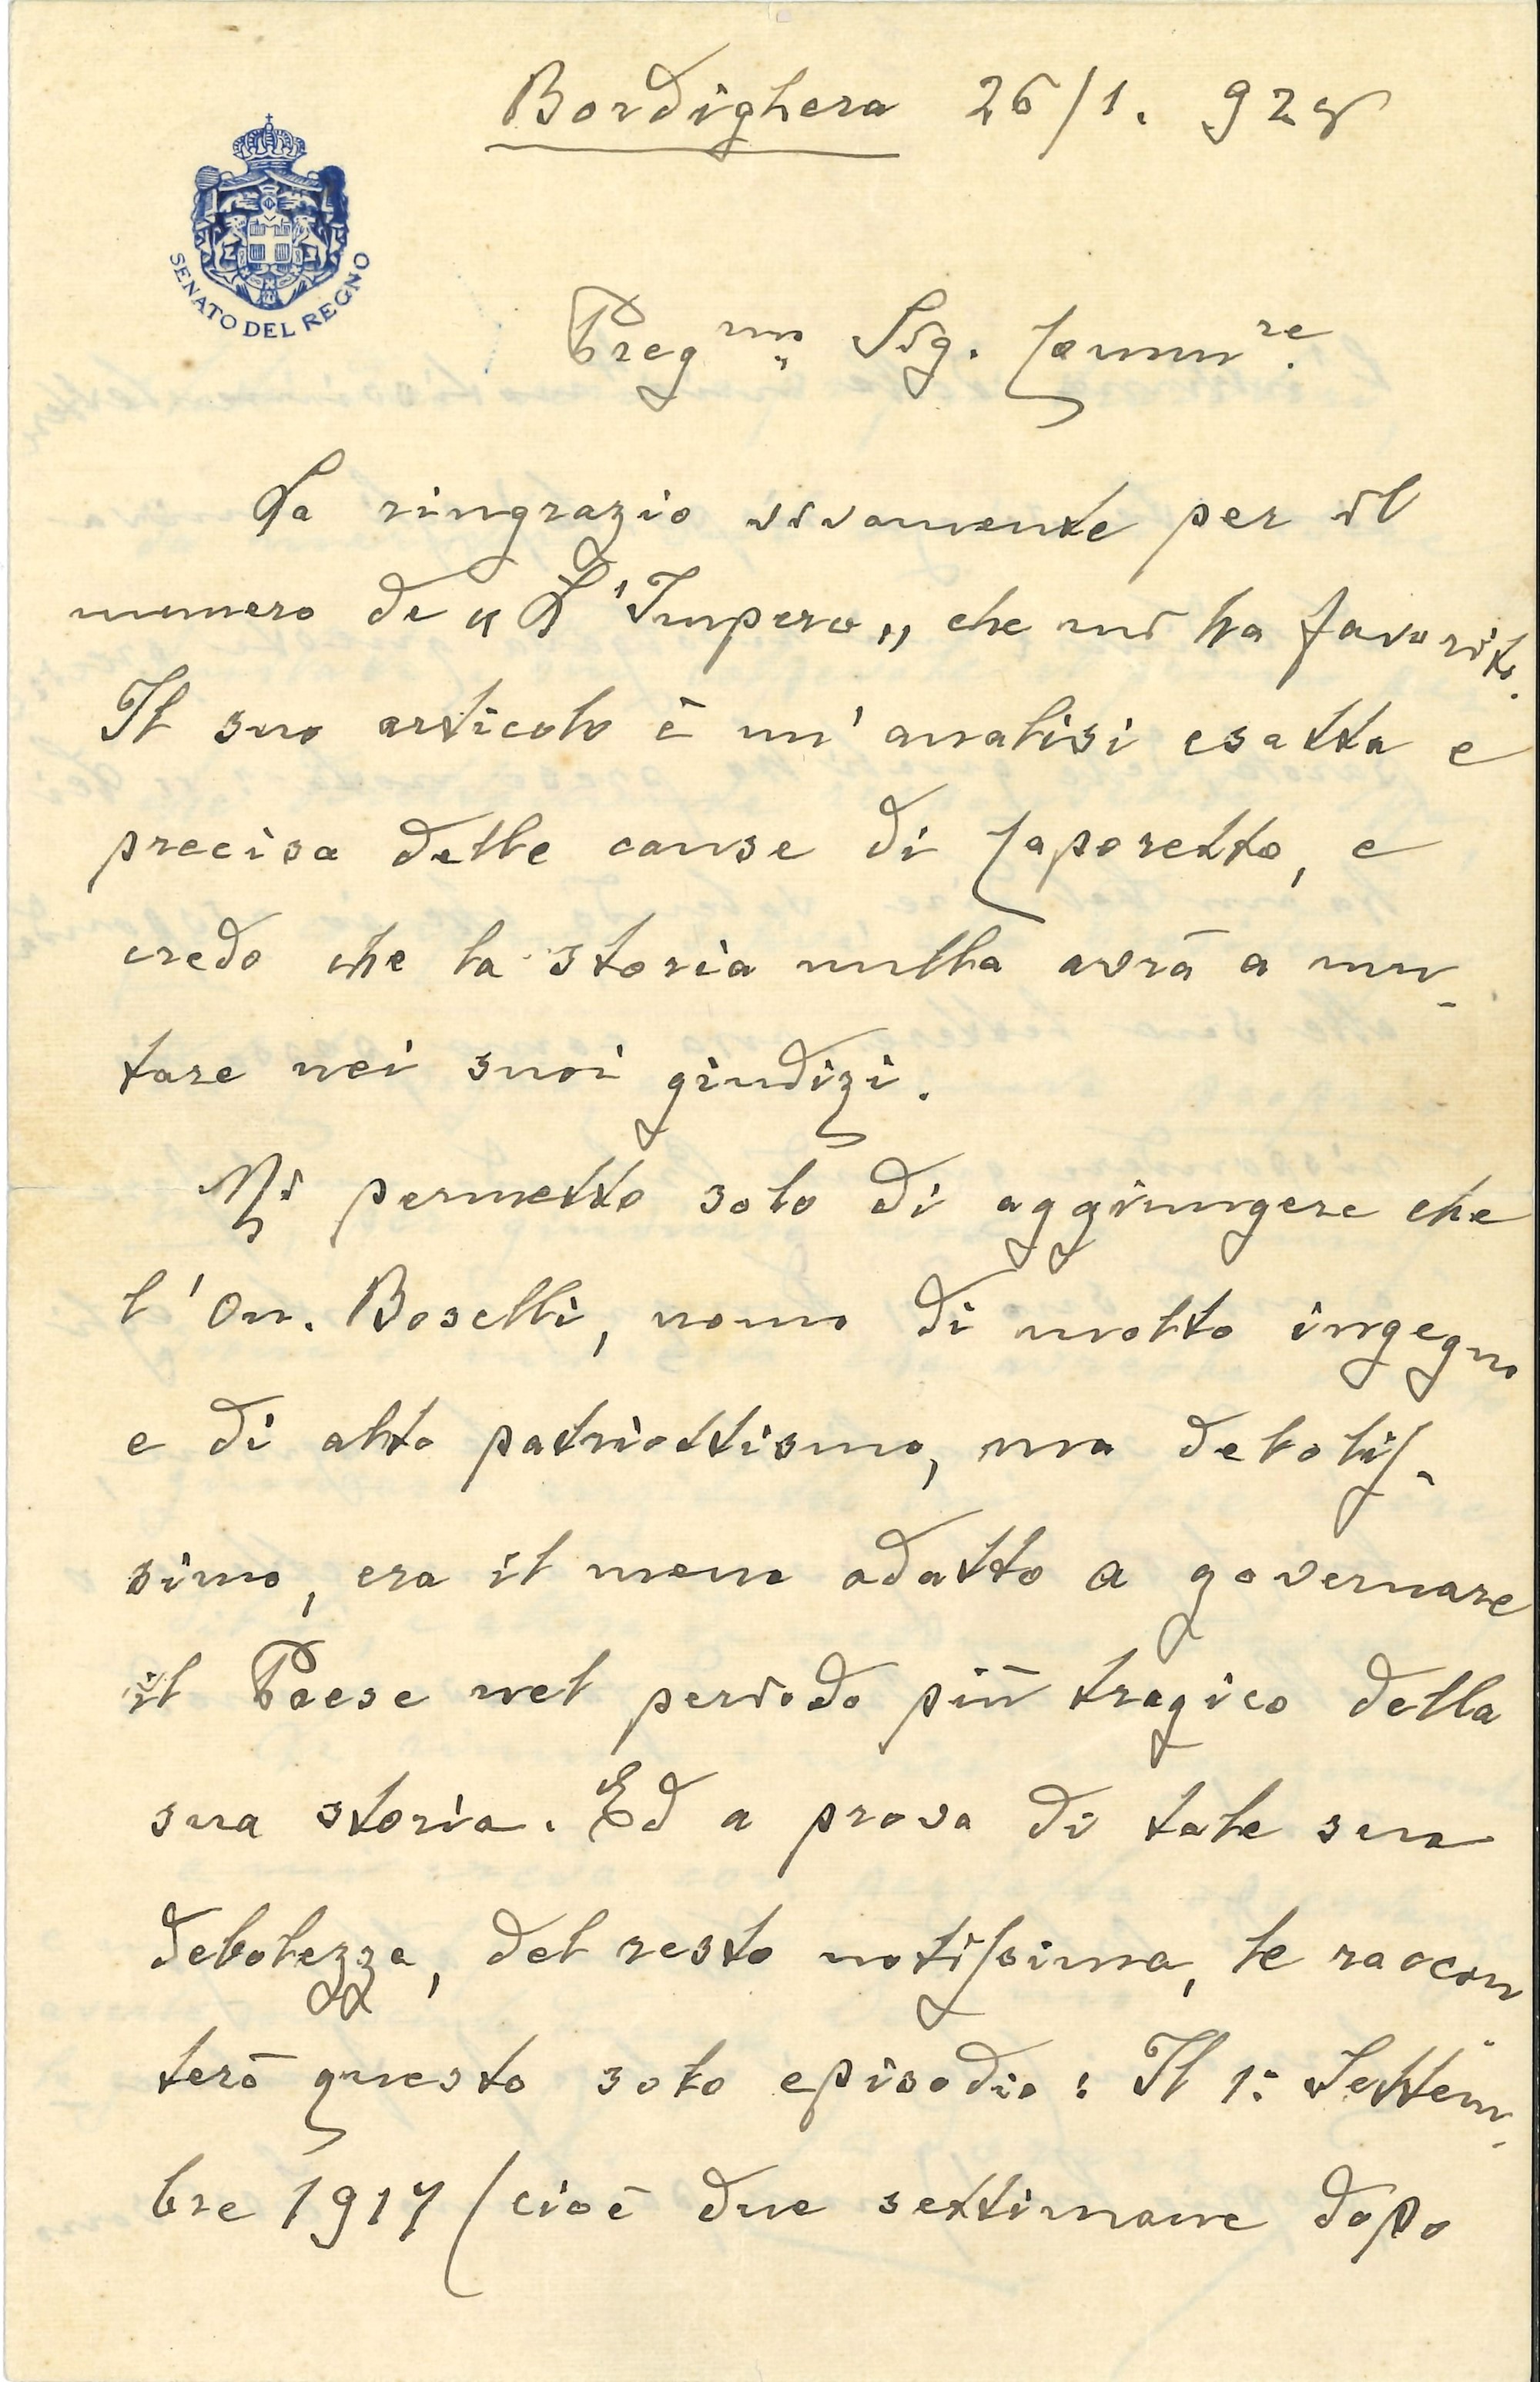 Bordighera 26/1. 928
SENATO DEL REGNO
Preg.mo Sig. Comm.re
La ringrazio vivamente per il
numero de "L'Impero" che mi ha favorito.
Il suo articolo è un'analisi esatta e
precisa delle cause di Caporetto, e
credo che la storia nulla avrà a mu-
tare nei suoi giudizi.
Mi permetto solo di aggiungere che
l'On. Boselli, uomo di molto ingegno
e di alto patriottismo, ma debolis-
simo, era il meno adatto a governare
il Paese nel periodo più tragico della
sua storia. Ed a prova di tale sua
debolezza, del resto notissima, le raccon
terò questo solo episodio: Il 1° Settem-
bre 1917 (cioè due settimane dopo